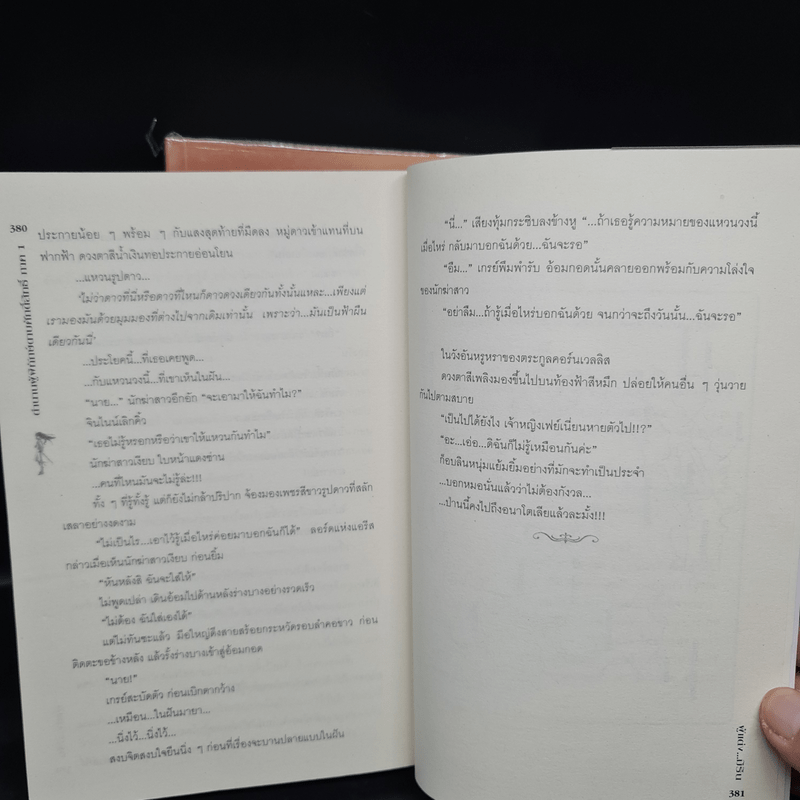 380
ประกายน้อย ๆ พร้อม ๆ กับแสงสุดท้ายที่มืดลง หมู่ดาวเข้าแทนที่บน
ฟากฟ้า ดวงตาสีน้ำเงินทอประกายอ่อนโยน
...แหวนรูปดาว...
'ไม่ว่าดาวที่นี่หรือดาวที่ไหนก็ดาวดวงเดียวกันทั้งนั้นแหละ...เพียงแต่
เรามองมันด้วยมุมมองที่ต่างไปจากเดิมเท่านั้น เพราะว่า...มันเป็นฟ้าผืน
เดียวกันนี่'
...ประโยคนี้...ที่เธอเคยพูด...
...กับแหวนวงนี้...ที่เขาเห็นในฝัน...
“นาย...” นักฆ่าสาวอึกอัก “จะเอามาให้ฉันทำไม?”
จินไนน์เลิกคิ้ว
“เธอไม่รู้หรอกหรือว่าเขาให้แหวนกันทำไม”
นักฆ่าสาวเงียบ ใบหน้าแดงซ่าน
...คนที่ไหนมันจะไม่รู้ล่ะ!!!
ทั้ง ๆ ที่รู้ทั้งรู้ แต่ก็ยังไม่กล้าปริปาก จ้องมองเพชรสีขาวรูปดาวที่สลัก
เสลาอย่างงดงาม
“ไม่เป็นไร...เอาไว้รู้เมื่อไหร่ค่อยมาบอกฉันก็ได้” ลอร์ดแห่งแอรีส
กล่าวเมื่อเห็นนักฆ่าสาวเงียบ ก่อนยิ้ม
“หันหลังสิ ฉันจะใส่ให้”
ไม่พูดเปล่า เดินอ้อมไปด้านหลังร่างบางอย่างรวดเร็ว
“ไม่ต้อง ฉันใส่เองได้”
แต่ไม่ทันซะแล้ว มือใหญ่ดึงสายสร้อยกระหวัดรอบลำคอขาว ก่อน
ติดตะขอข้างหลัง แล้วรั้งร่างบางเข้าสู่อ้อมกอด
“นาย!”
เกรย์สะบัดตัว ก่อนเบิกตากว้าง
...เหมือน...ในฝันมายา...
...นิ่งไว้...นิ่งไว้...
สงบจิตสงบใจยืนนิ่ง ๆ ก่อนที่เรื่องจะบานปลายแบบในฝัน
“นี่...” เสียงทุ้มกระซิบลงข้างหู “...ถ้าเธอรู้ความหมายของแหวนวงนี้
เมื่อไหร่ กลับมาบอกฉันด้วย...ฉันจะรอ”
“อืม...” เกรย์พึมพำรับ อ้อมกอดนั้นคลายออกพร้อมกับความโล่งใจ
ของนักฆ่าสาว
“อย่าลืม...ถ้ารู้เมื่อไหร่บอกฉันด้วย จนกว่าจะถึงวันนั้น...ฉันจะรอ”
ในวังอันหรูหราของตระกูลคอร์นเวลลิส
ดวงตาสีเพลิงมองขึ้นไปบนท้องฟ้าสีหมึก ปล่อยให้คนอื่น ๆ วุ่นวาย
กันไปตามสบาย
“เป็นไปได้ยังไง เจ้าหญิงเฟย์เนี่ยนหายตัวไป!!?”
“อะ...เอ่อ...ดิฉันก็ไม่รู้เหมือนกันค่ะ”
ก็อบลินหนุ่มแย้มยิ้มอย่างที่มักจะทำเป็นประจำ
...บอกหมอนั่นแล้วว่าไม่ต้องกังวล...
...ป่านนี้คงไปถึงอนาโตเลียแล้วละมั้ง!!!
381